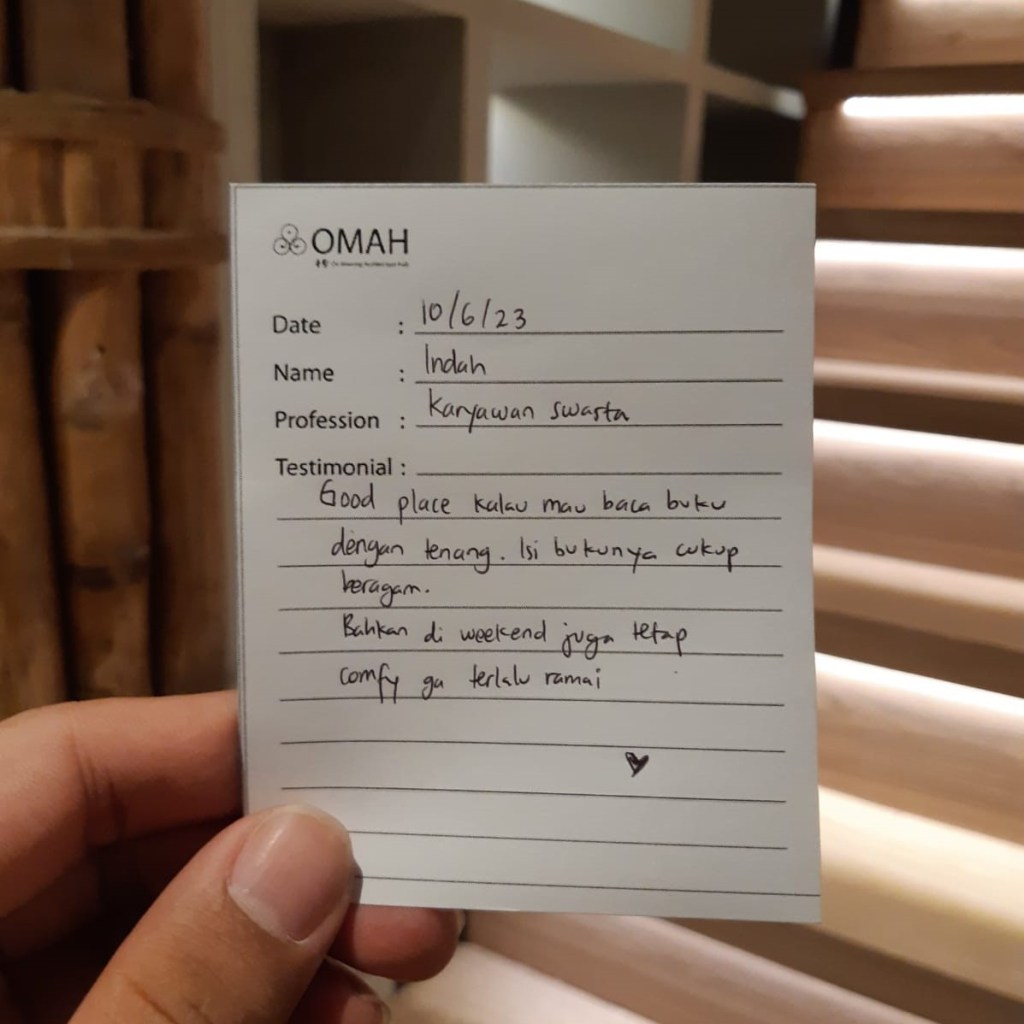 OMAH
Date : 10/6/23
Name : Indah
Profession : Karyawan swasta
Testimonial :
Good place kalau mau baca buku
dengan tenang. Isi bukunya cukup
beragam.
Bahkan di weekend juga tetap
comfy ga terlalu ramai